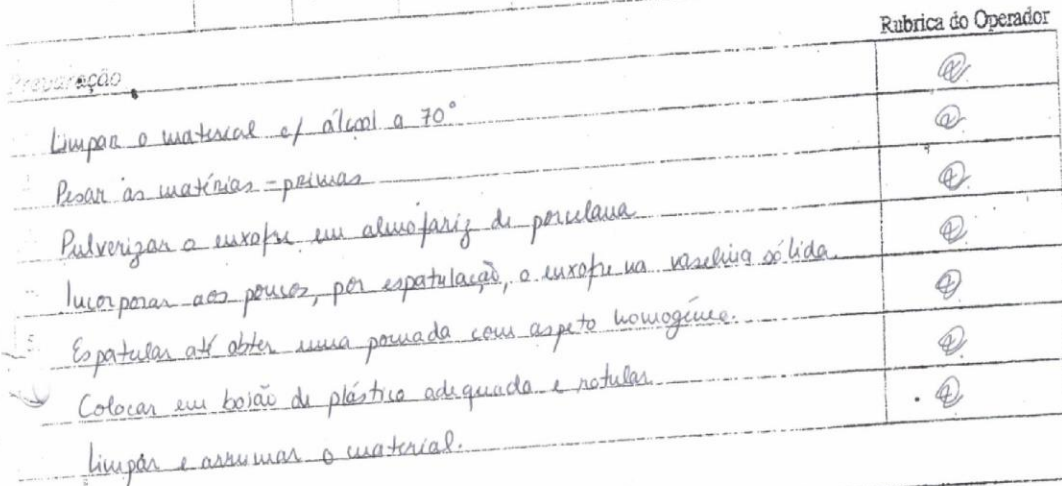 Rubrica do Operador
Preparação
Limpar o material c/ álcool a 70°
Pesar as matérias-primas
Pulverizar o enxofre em almofariz de porcelana
Incorporar aos poucos, por espatulação, o enxofre na vaselina sólida.
Espatular até obter uma pomada com aspeto homogéneo.
Colocar em boião de plástico adequado e rotular
Limpar e arrumar o material.